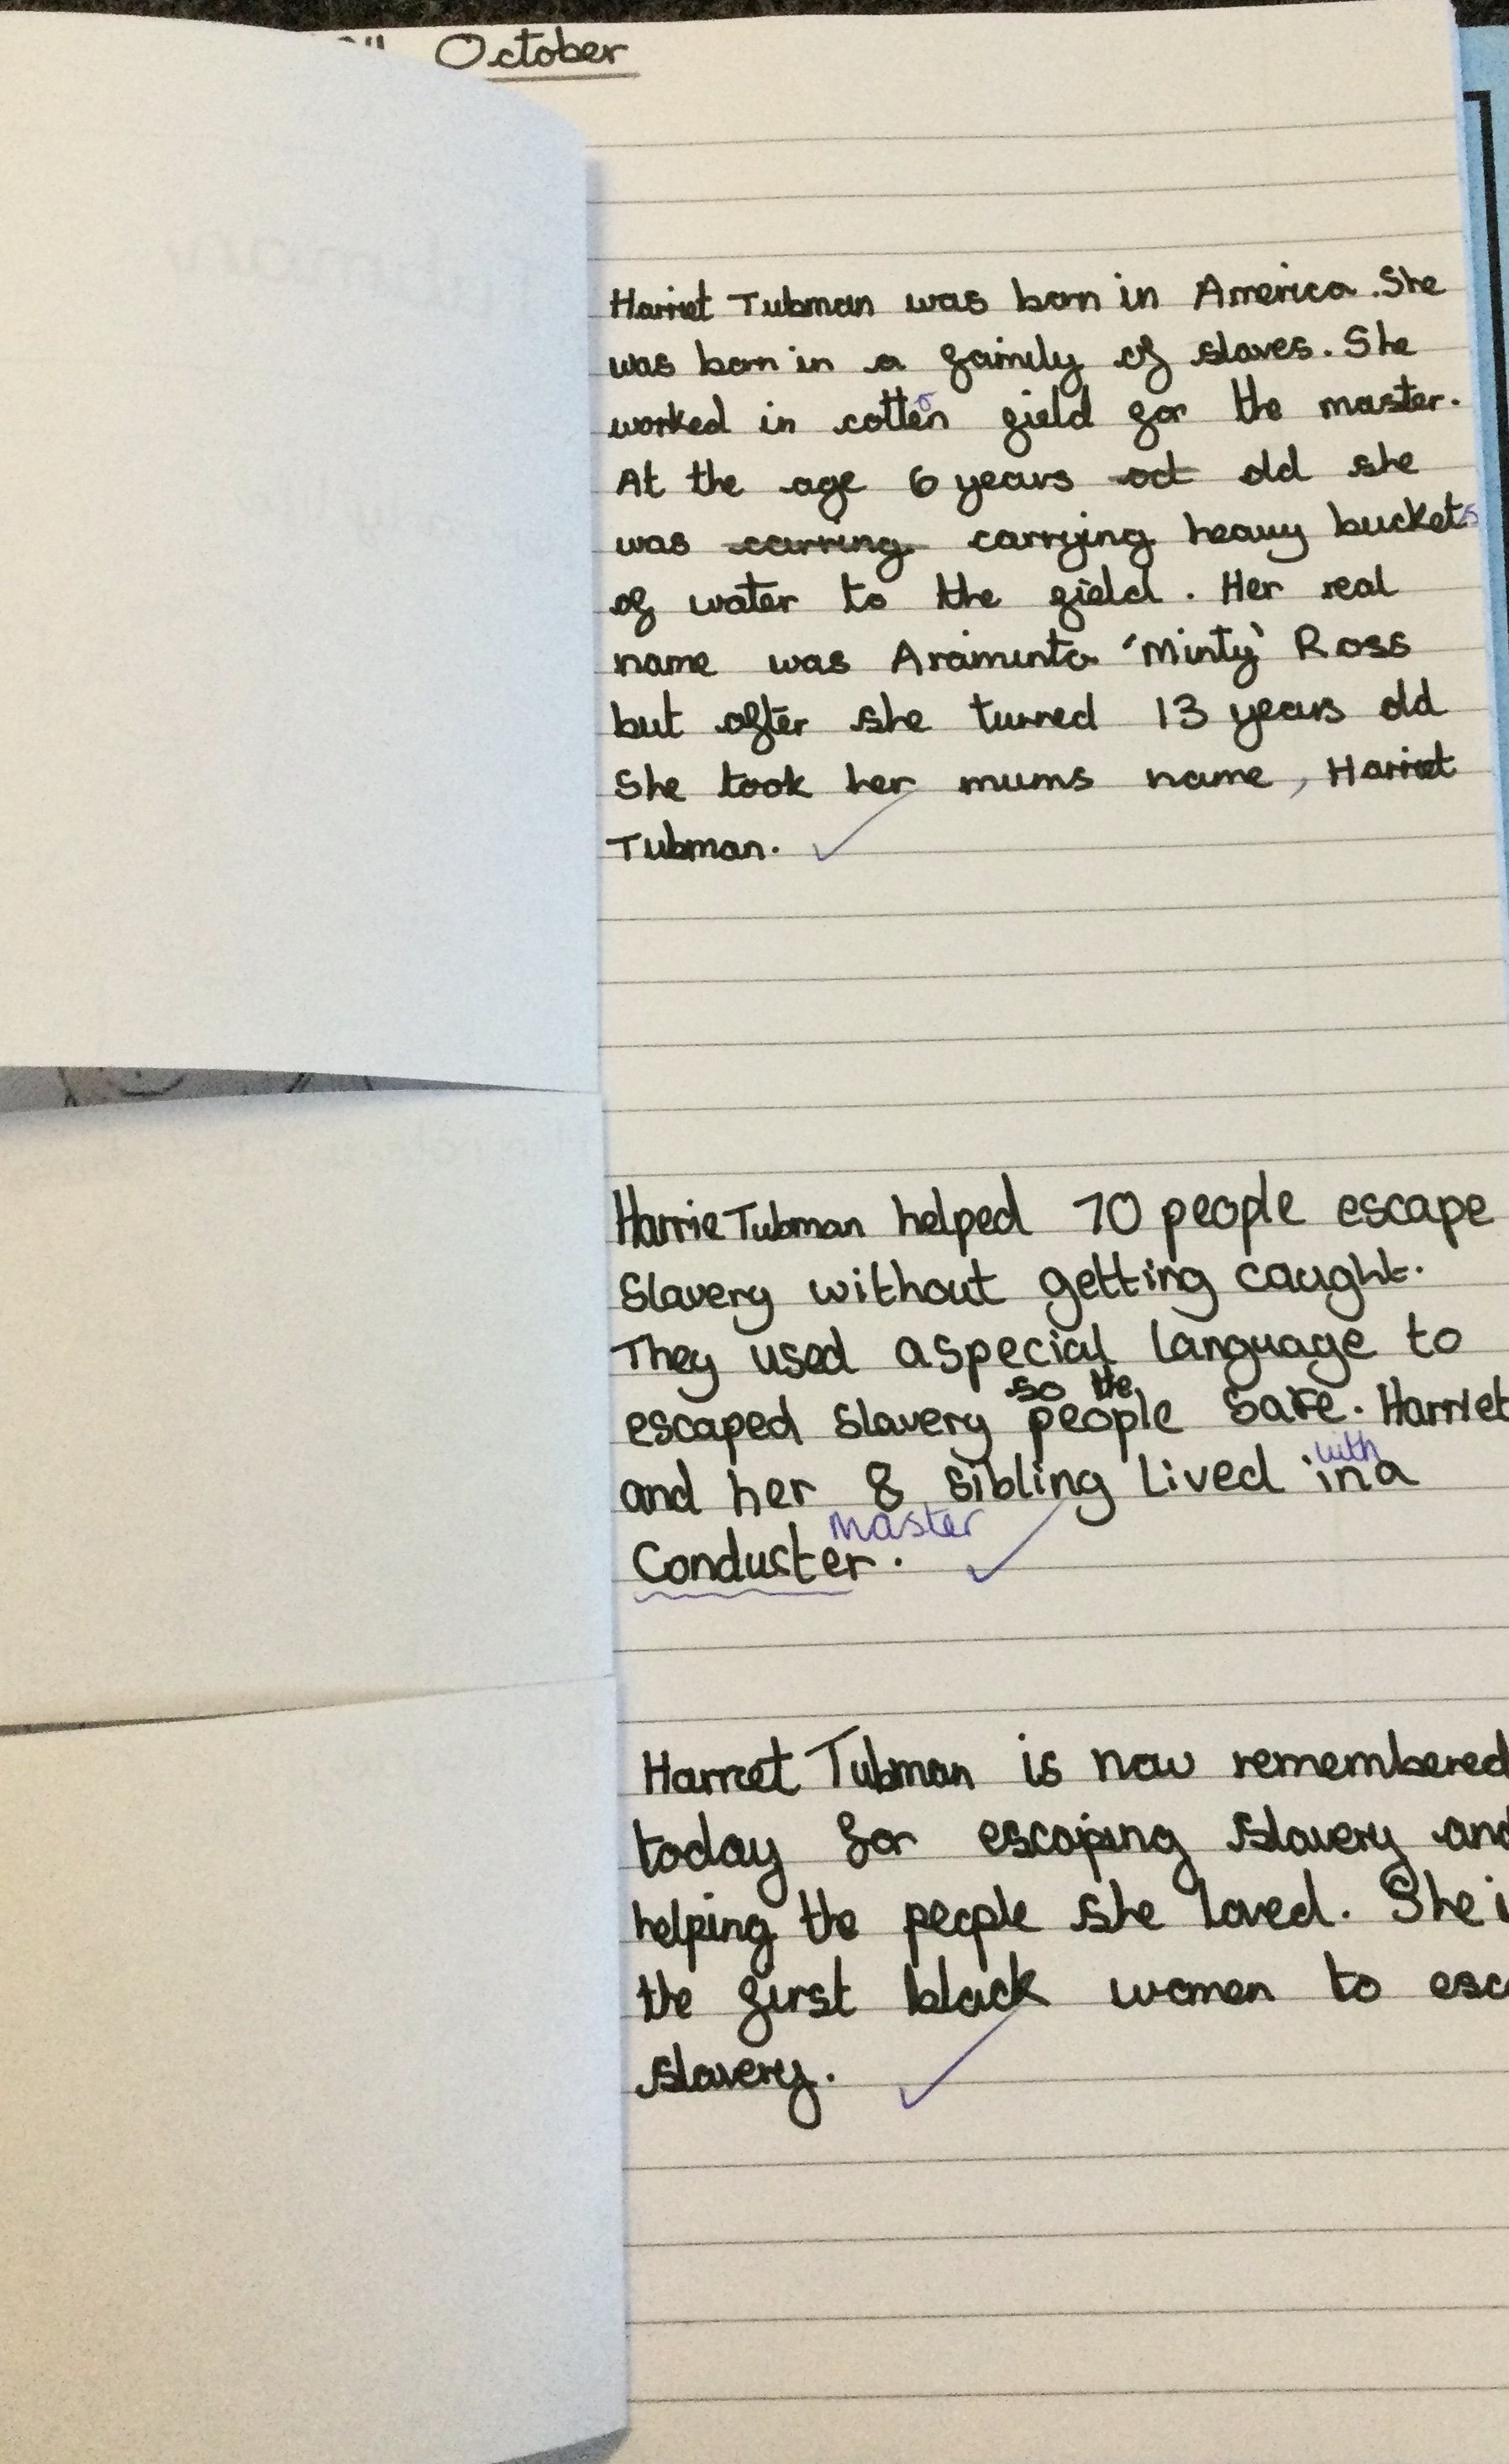 October
Harriet Tubman was born in America. She
was born in a family of slaves. She
worked in cotten field for the master.
At the age 6 years oct old she
was carring carrying heavy buckets
of water to the field. Her real
name was Araminta 'Minty' Ross
but after she turned 13 years old
She took her mums name, Harriet
Tubman.
Harrie Tubman helped 70 people escape
Slavery without getting caught.
They used a special language to
so the
escaped Slavery people safe. Harriet
with
and her 8 sibling Lived in a
Master
Conduster.
Harriet Tubman is now remembered
today for escaping slavery and
helping the people she loved. She i
the first black women to esc
slavery.